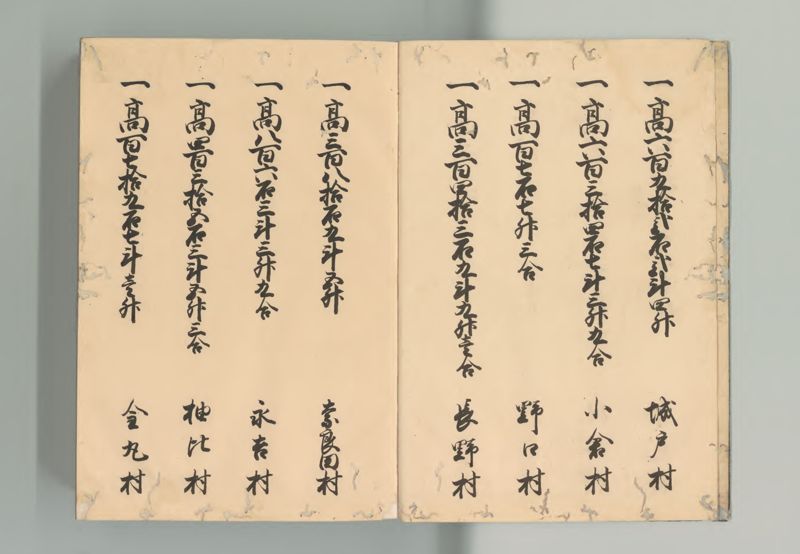 一高六百九拾弐石弐斗四升 城戸村
一高六百三拾四石七斗三升九合 小倉村
一高百七石七升三合 野口村
一高三百四拾三石九斗九升壱合 長野村
一高三百八拾石九斗五升 奈良田村
一高八百六石三斗三升九合 永吉村
一高四百三拾五石三斗五升三合 柚比村
一高百七拾九石七斗壱升 金丸村